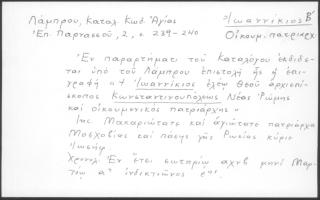 Λάμπρου, Καταλ. Κωδ. Ἁγίας
Ἰωαννίκιος Β΄
Ἐπ. Παρνασσοῦ, 2, σ. 239-240
Οἰκουμ. πατριάρχ.
Ἐν παραρτήματι τοῦ Καταλόγου ἐκδίδε-
ται ὑπὸ τοῦ Λάμπρου ἐπιστολὴ ἧς ἡ ἐπι-
γραφὴ "Ἰωαννίκιος ἐλέῳ Θεοῦ ἀρχιεπί-
σκοπος Κωνσταντινουπόλεως Νέας Ῥώμης
καὶ οἰκουμενικὸς πατριάρχης"
Μακαριώτατε καὶ ἁγιώτατε πατριάρχα
Μοσχοβίας καὶ πάσης γῆς Ρωσίας κύριε
Ἰωσήφ
Χρονολ. Ἐν ἔτει σωτηρίῳ αχνβ μηνὶ Μαρ-
τίῳ α΄ ἰνδικτιῶνος